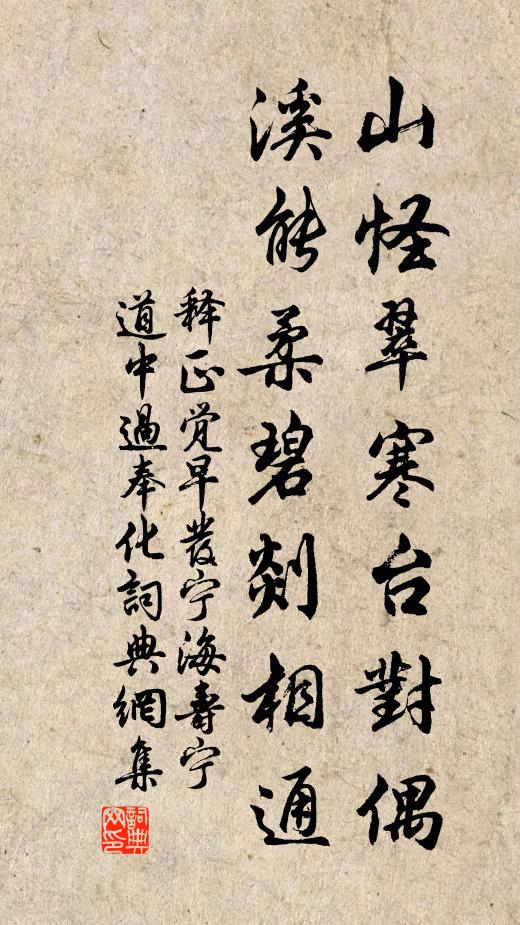 山怪翠寒台對偶
溪能柔碧剡相通
释正觉早發宁海壽宁
道中過奉化詞典網集
詞典网印